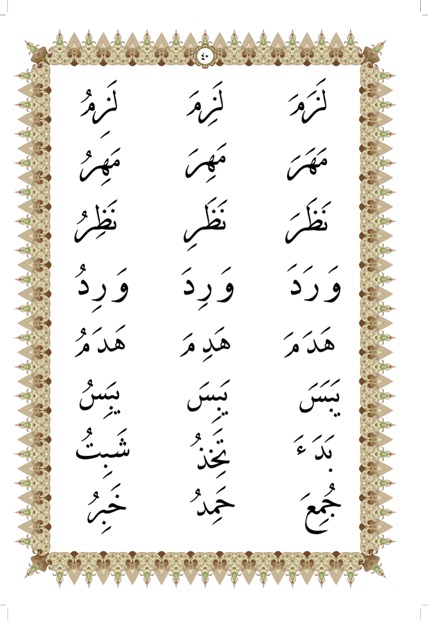 ٤٠
لَزَمَ لَزِمَ لَزِمُ
مَهَرَ مَهِرَ مَهِرُ
نَظَرَ نَظَرِ نَظِرُ
وَرَدَ وَرِدَ وَرِدُ
هَدَمَ هَدِمَ هَدَمُ
يَبَسَ يَبِسَ يَبِسُ
بَدَءَ تَخِذُ شَبِتُ
جُمِعَ حَمِدُ خَبِرُ